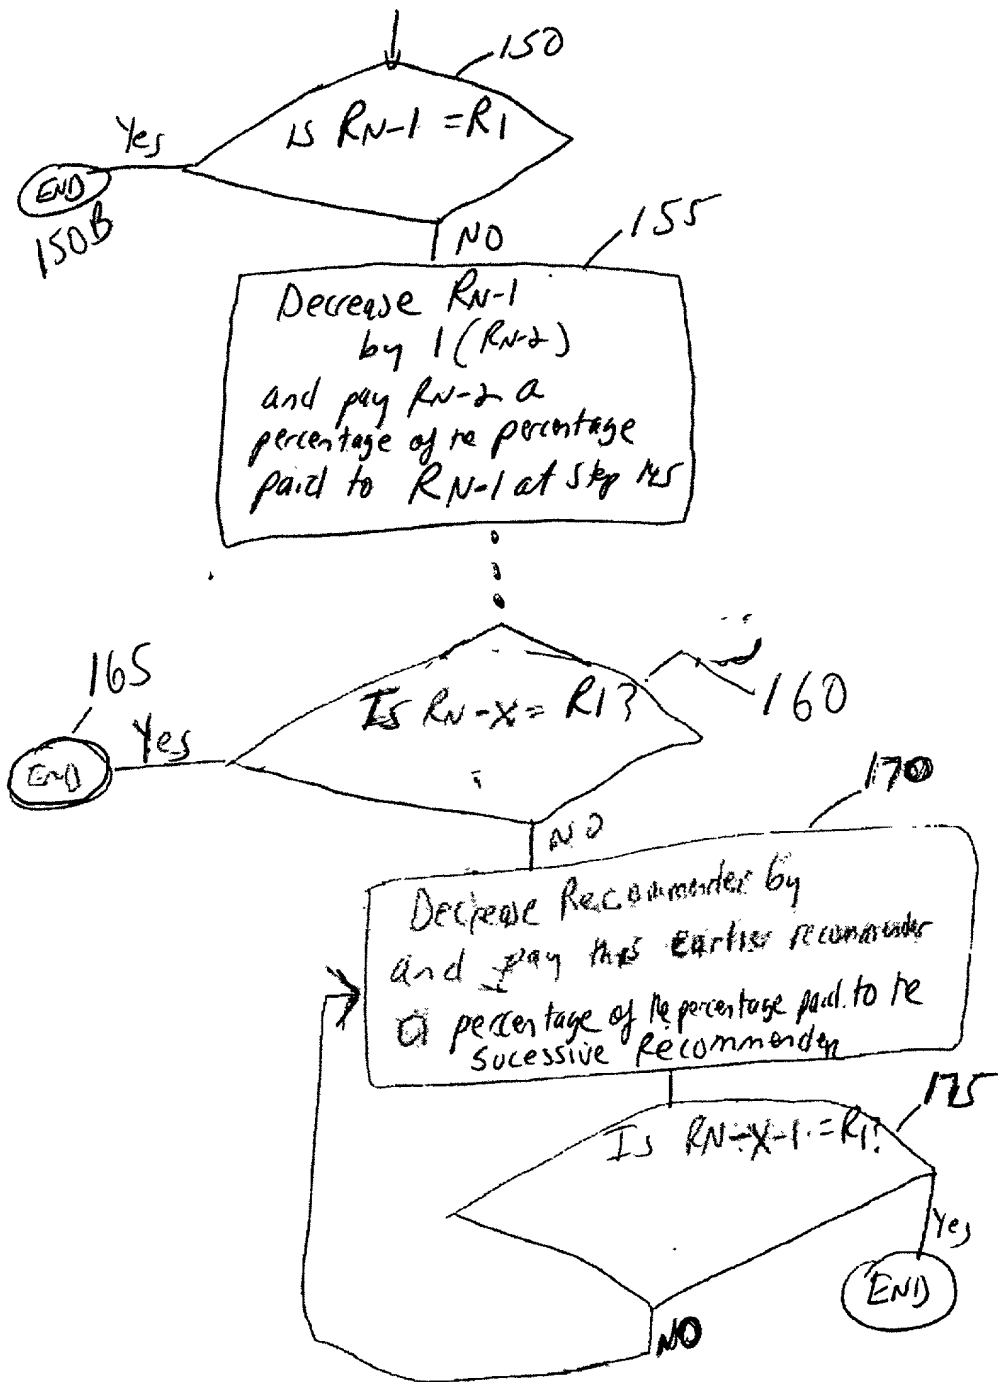 150
is RN-1 = R1
Yes
END
150B
NO
155
Decrease RN-1
by 1 (RN-2)
and pay RN-2 a
percentage of te percentage
paid to RN-1 at step
165
Is RN-X = R1?
160
Yes
END
NO
170
Decrease Recommender by
and pay this earlier recommender
a percentage of te percentage paid to te
sucessive Recommender
175
Is RN-X-1 = R1?
Yes
END
NO